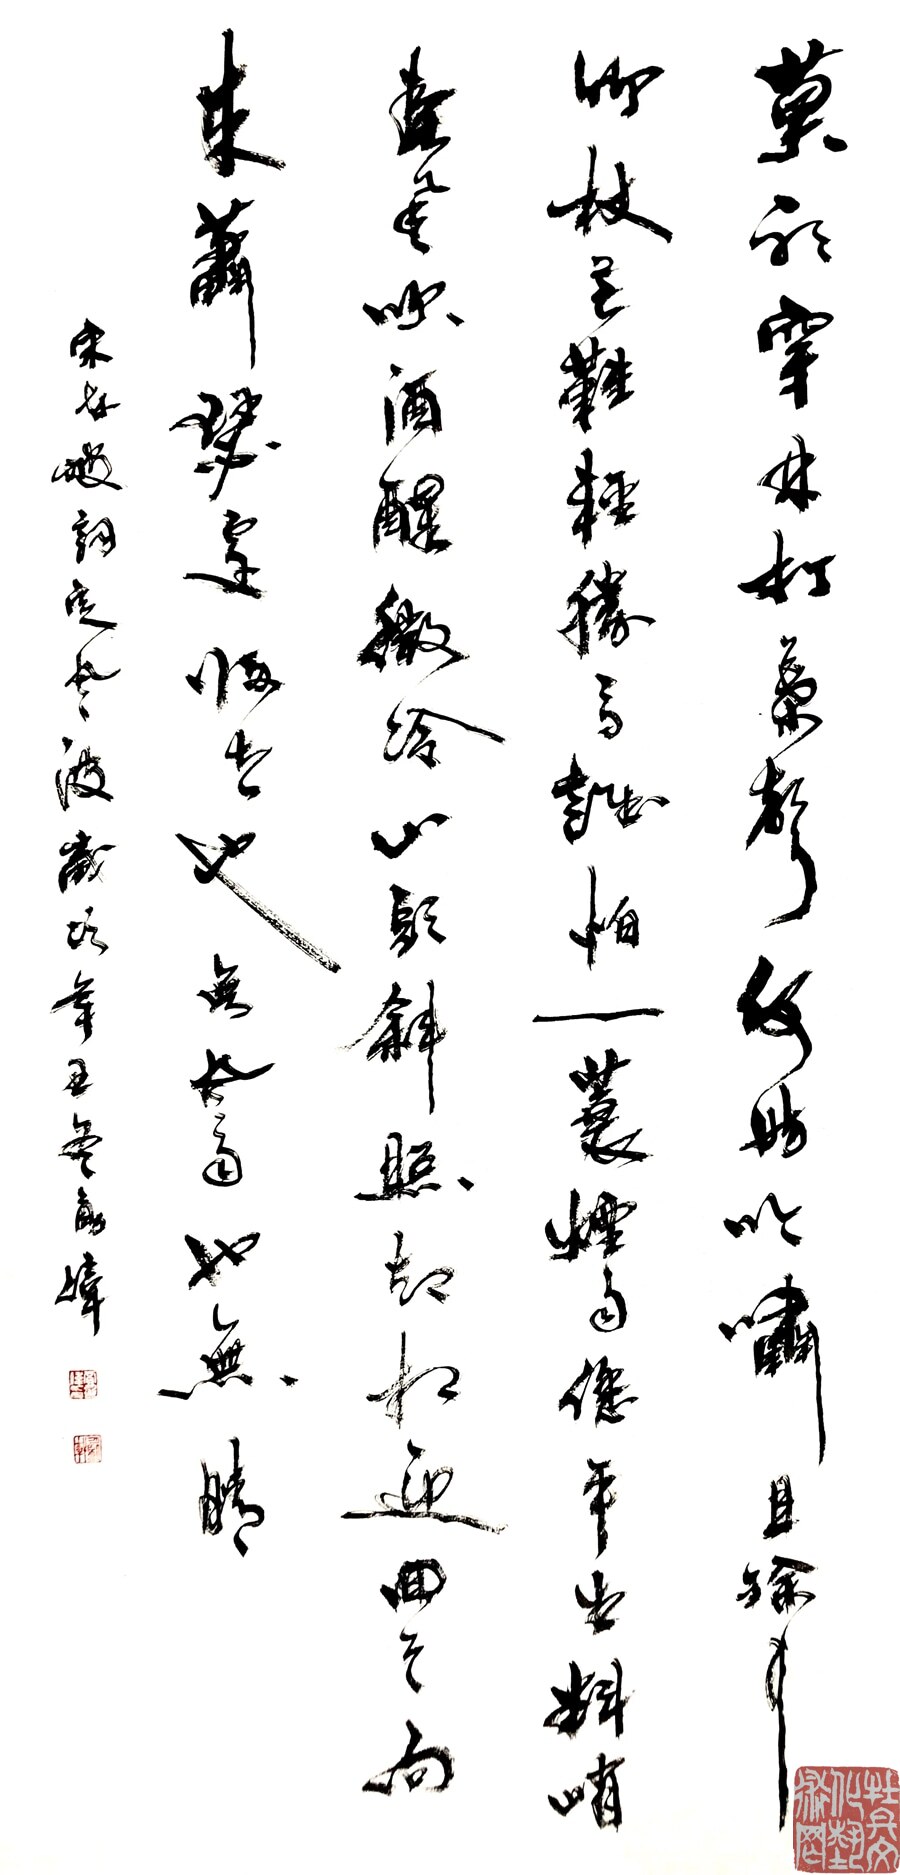 莫聽穿林打葉聲何妨吟嘯且徐行
竹杖芒鞋輕勝馬誰怕一蓑煙雨平生料峭
春風吹酒醒微冷山頭斜照却相迎回首向
來蕭瑟處歸去也無風雨也無晴
宋東坡詞定風波歲次辛丑冬